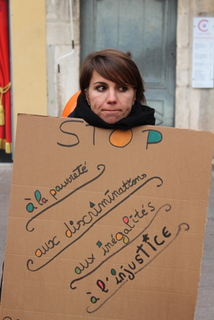 STOP
à la pauvreté
aux discriminations
aux inégalités
à l'injustice